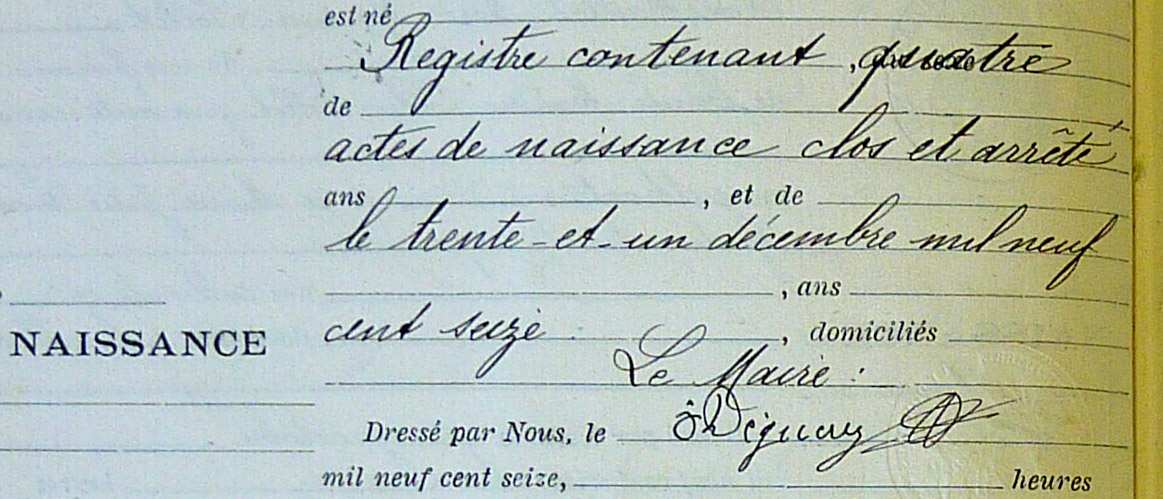 est né
Registre contenant, quatre
de
actes de naissance clos et arrêté
ans , et de
le trente-et-un décembre mil neuf
, ans
cent seize. , domiciliés
NAISSANCE
Le Maire :
Dressé par Nous, le
mil neuf cent seize, heures